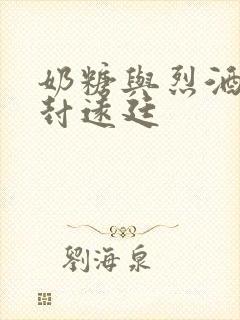 奶糖與烈酒
封遠廷
劉海泉